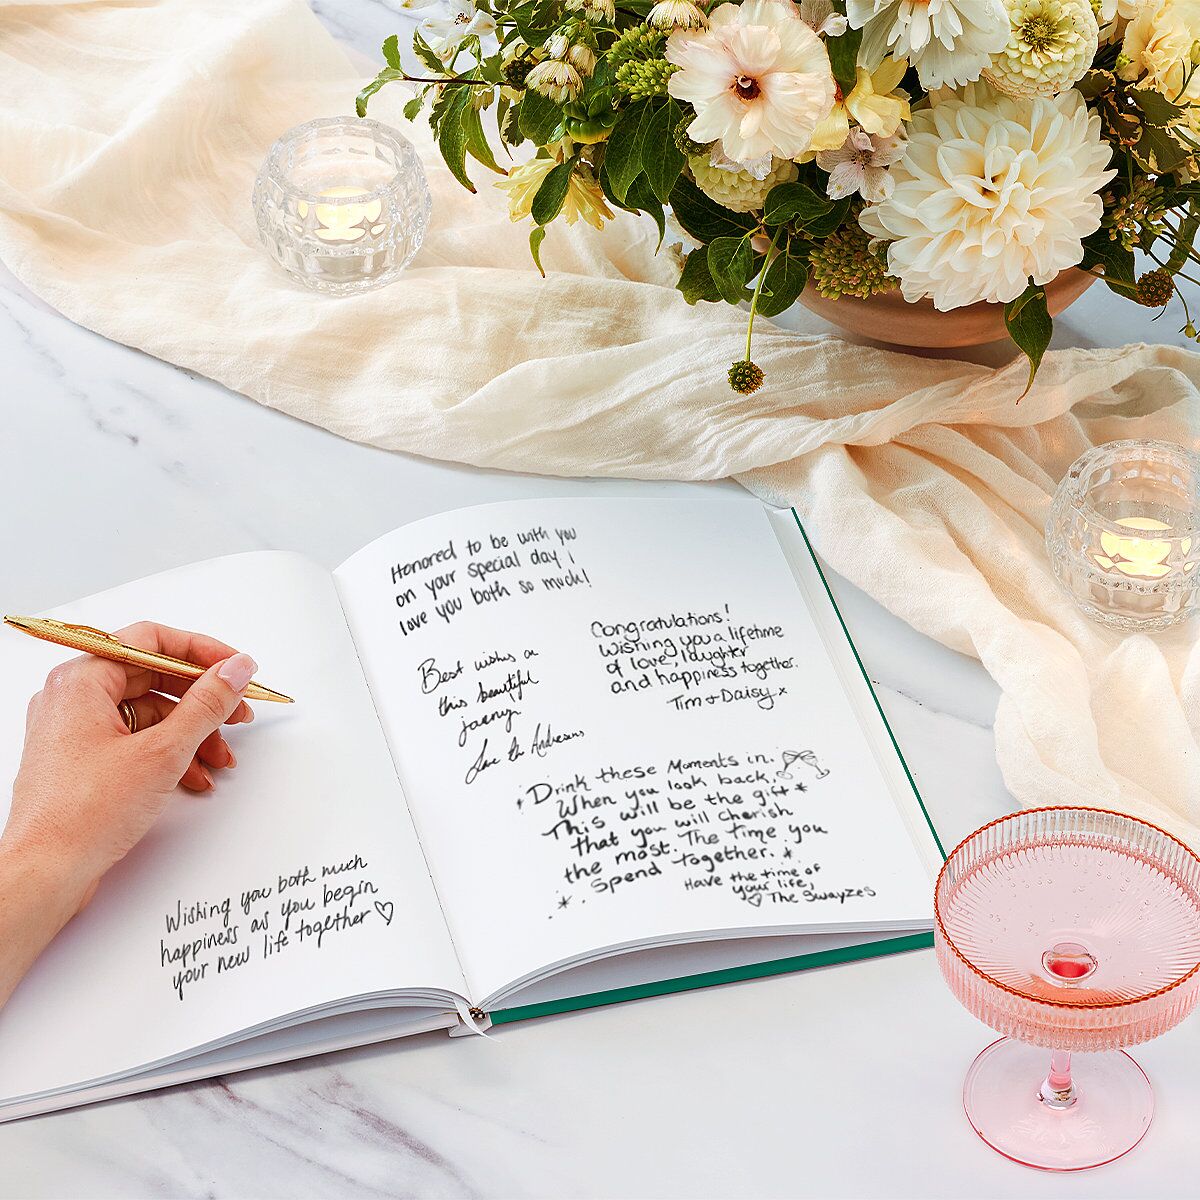 Wishing you both much
happiness as you begin
your new life together ♡
Honored to be with you
on your special day I
love you both so much!
Congratulations!
Wishing you a lifetime
of love, laughter
and happiness together.
Tim + Daisy x
Best wishes on
this beautiful
journey.
Love the Andersons
Drink these Moments in.
When you look back,
This will be the gift *
that you will cherish
the most. The time you
spend together. *
Have the time of
your life,
♡ The Swayzes